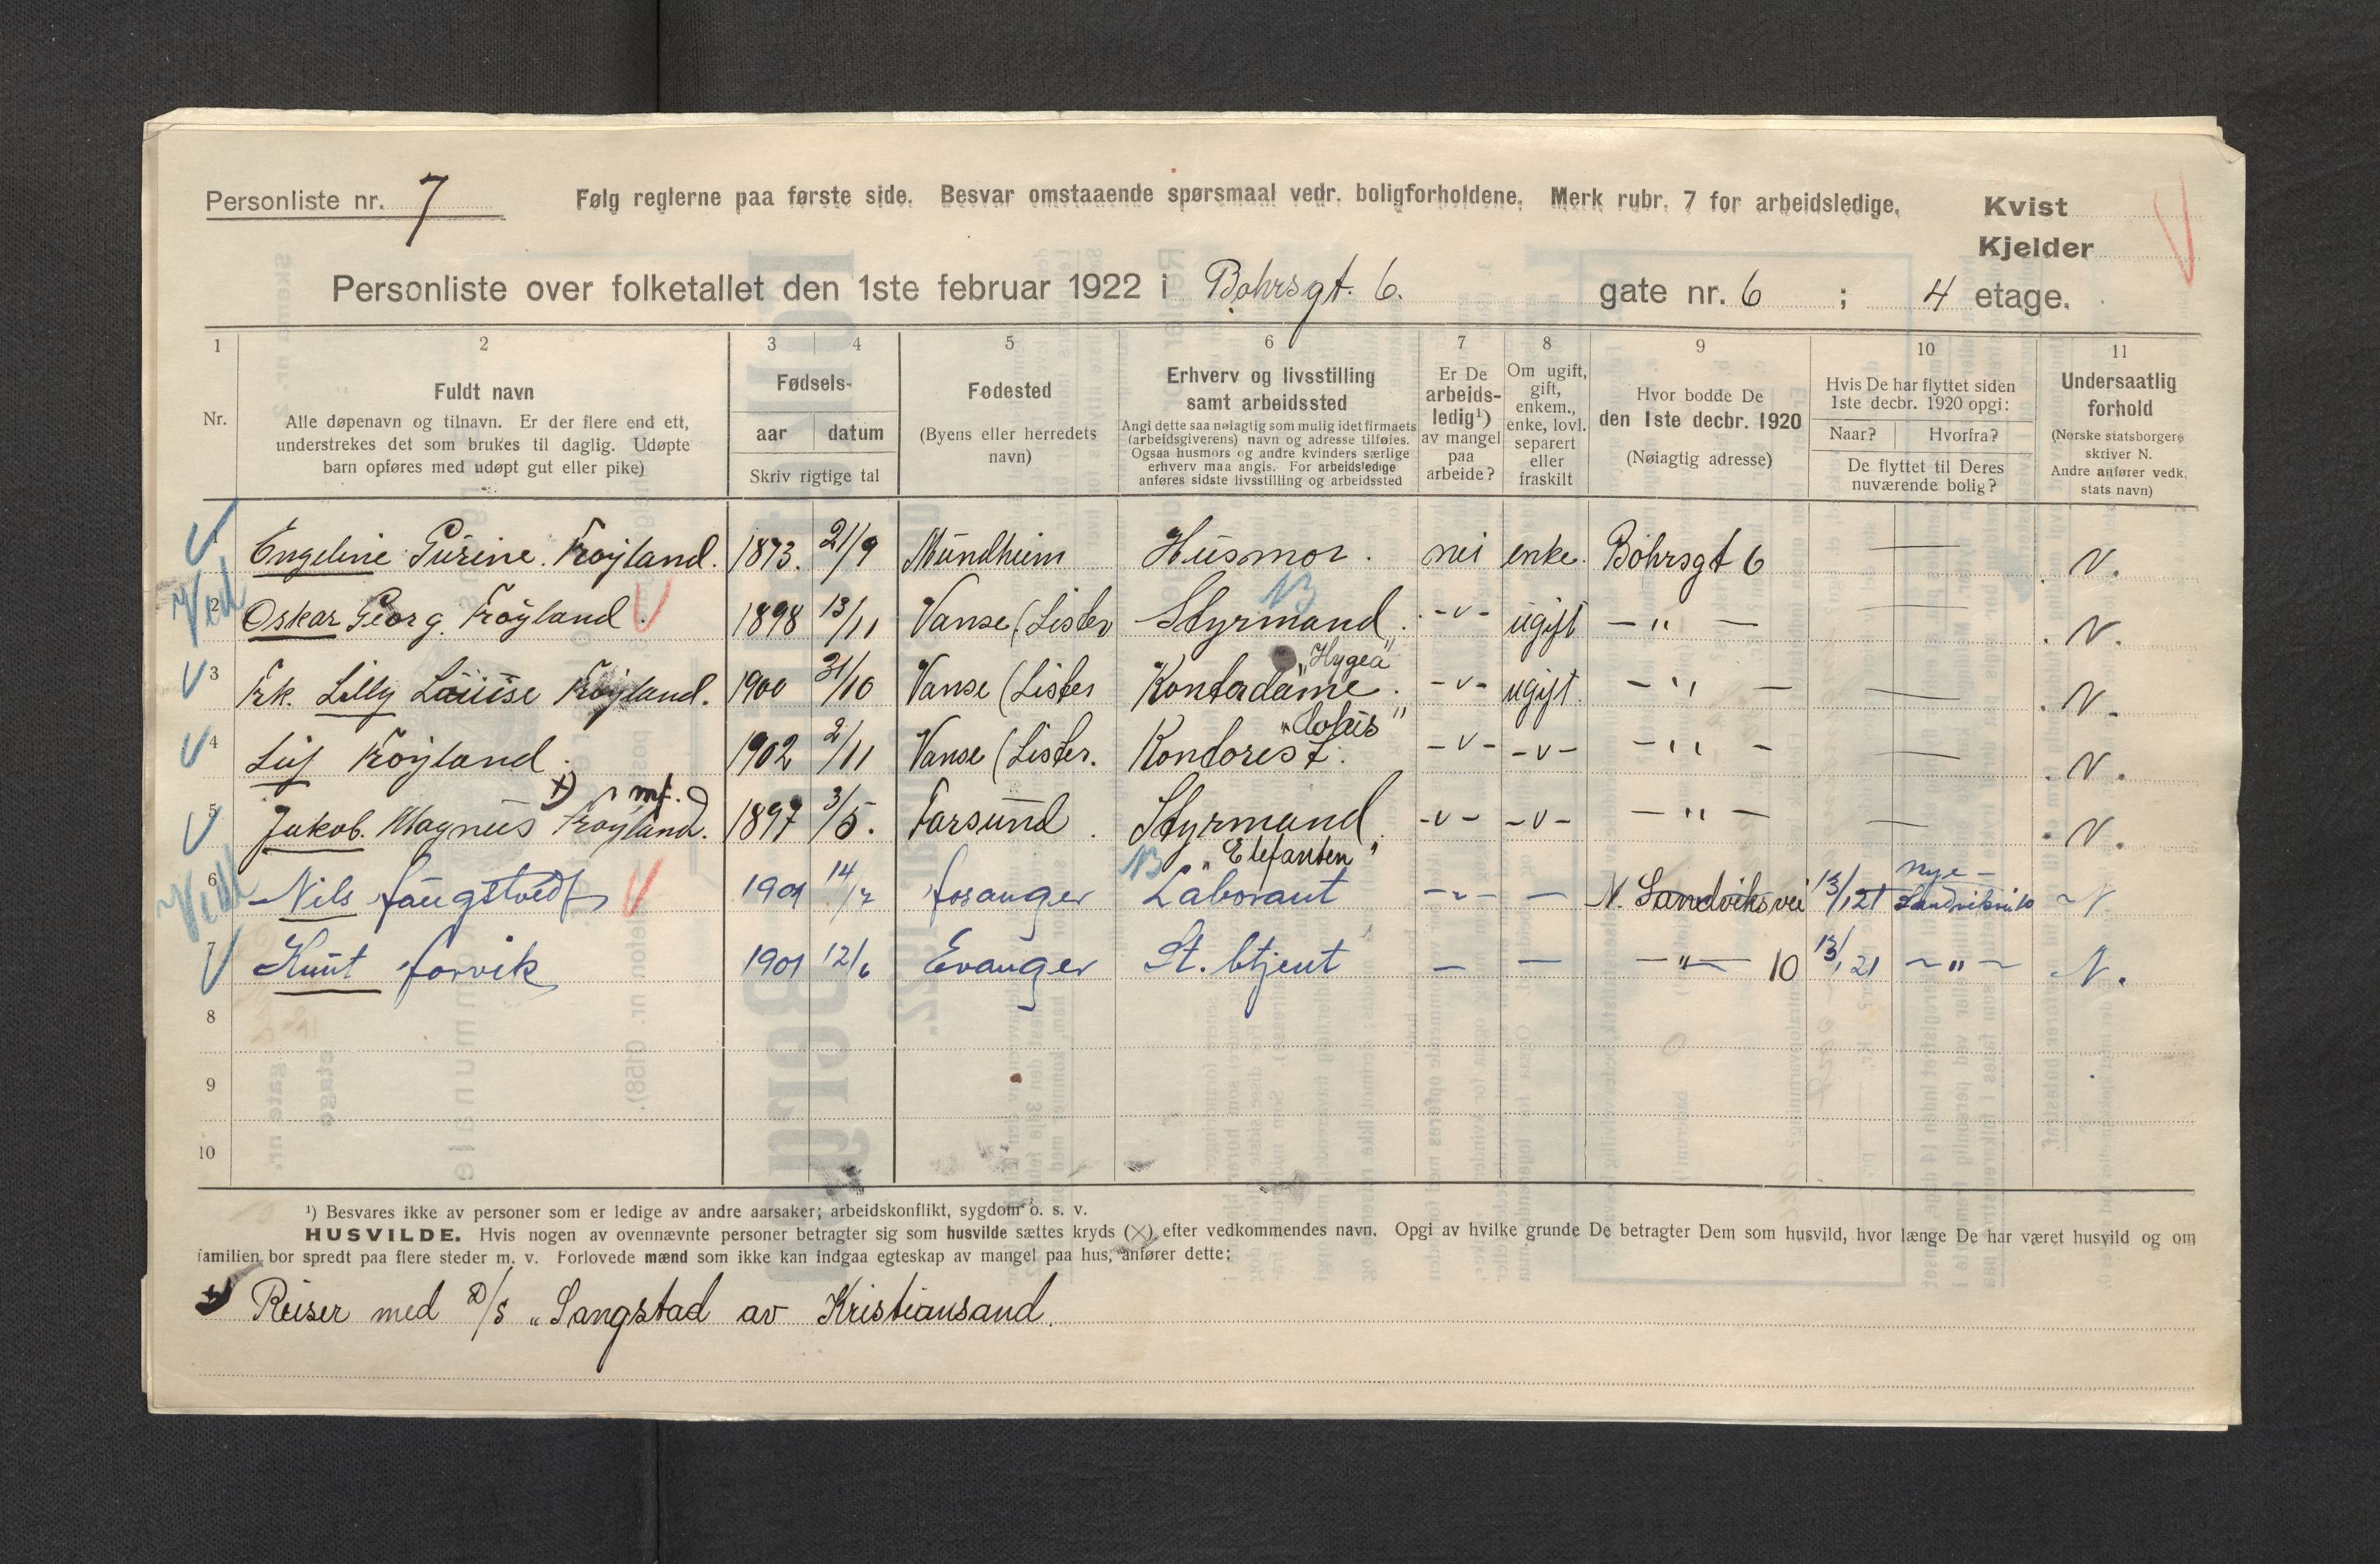 Personliste nr. 7
Følg reglerne paa første side. Besvar omstaaende spørsmaal vedr. boligforholdene. Merk rubr. 7 for arbeidsledige.
Kvist
Kjelder
Personliste over folketallet den 1ste februar 1922 i Bøhrsgt. 6. gate nr. 6 ; 4 etage.
1 2 3 4 5 6 7 8 9 10 11
Nr.
Fuldt navn
Alle døpenavn og tilnavn. Er der flere end ett,
understrekes det som brukes til daglig. Udøpte
barn opføres med udøpt gut eller pike)
Fødsels-
aar datum
Skriv rigtige tal
Fødested
(Byens eller herredets
navn)
Erhverv og livsstilling
samt arbeidssted
Angi dette saa nøiagtig som mulig idet firmaets
(arbeidsgiverens) navn og adresse tilføies.
Ogsaa husmors og andre kvinders særlige
erhverv maa angis. For arbeidsledige
anføres sidste livsstilling og arbeidssted
Er De
arbeids-
ledig¹)
av mangel
paa
arbeide?
Om ugift,
gift,
enkem.,
enke, lovl.
separert
eller
fraskilt
Hvor bodde De
den 1ste decbr. 1920
(Nøiagtig adresse)
Hvis De har flyttet siden
1ste decbr. 1920 opgi:
Naar? Hvorfra?
De flyttet til Deres
nuværende bolig?
Undersaatlig
forhold
(Norske statsborgere
skriver N.
Andre anfører vedk.
stats navn)
Engeline Gurine. Frøyland. 1873. 21/9 Mundheim Husmor. nei enke. Bøhrsgt 6 — N.
NB
2 Oskar Georg. Frøyland. V 1898 13/11 Vanse (Lister Styrmand. -v- ugift — " — — N.
"Hygea"
3 Frk. Lilly Louise Frøyland. 1900 31/10 Vanse (Lister Kontordame. -v- ugift. — " — — N.
4 Liv Frøyland. 1902 2/11 Vanse (Lister. Kontorist. -v- -v- — " — — N.
x) mf.
5 Jakob. Magnus Frøyland. 1897 3/5. Farsund. Styrmand. -v- -v- — " — — N.
NB "Elefanten"
6 Nils V 1901 14/7 Laborant -"- — N. Sandviksvei 13/1 21 nye- N
7 Knut 1901 12/6 Evanger St. btjent — — — " — 10 13/1 21 — " — N.
8
9
10
¹) Besvares ikke av personer som er ledige av andre aarsaker; arbeidskonflikt, sygdom o. s. v.
HUSVILDE. Hvis nogen av ovennævnte personer betragter sig som husvilde sættes kryds (X) efter vedkommendes navn. Opgi av hvilke grunde De betragter Dem som husvild, hvor længe De har været husvild og om
familien bor spredt paa flere steder m. v. Forlovede mænd som ikke kan indgaa egteskap av mangel paa hus, anfører dette:
x) Reiser med D/S "Sangstad av Kristiansand.